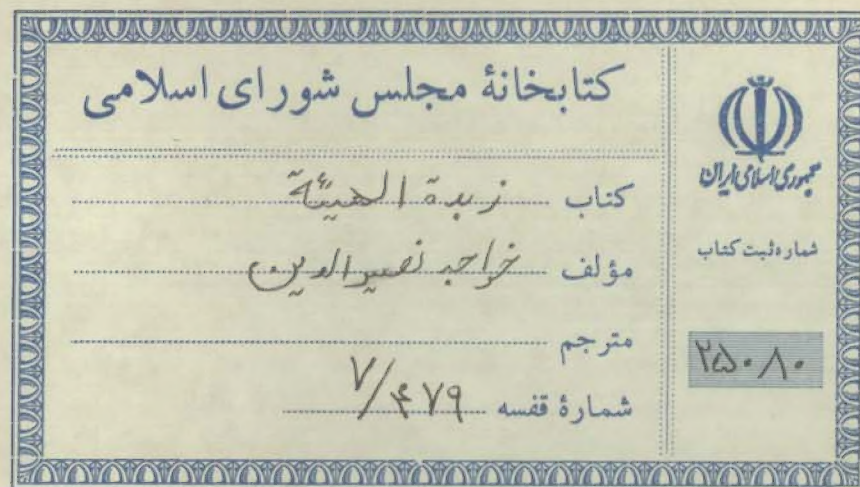 کتابخانهٔ مجلس شورای اسلامی
کتاب زبدة الهیئة
مؤلف خواجه نصیرالدین
مترجم
شمارهٔ قفسه ۷/۴۷۹
جمهوری اسلامی ایران
شماره ثبت کتاب
۲۵۰۸۰